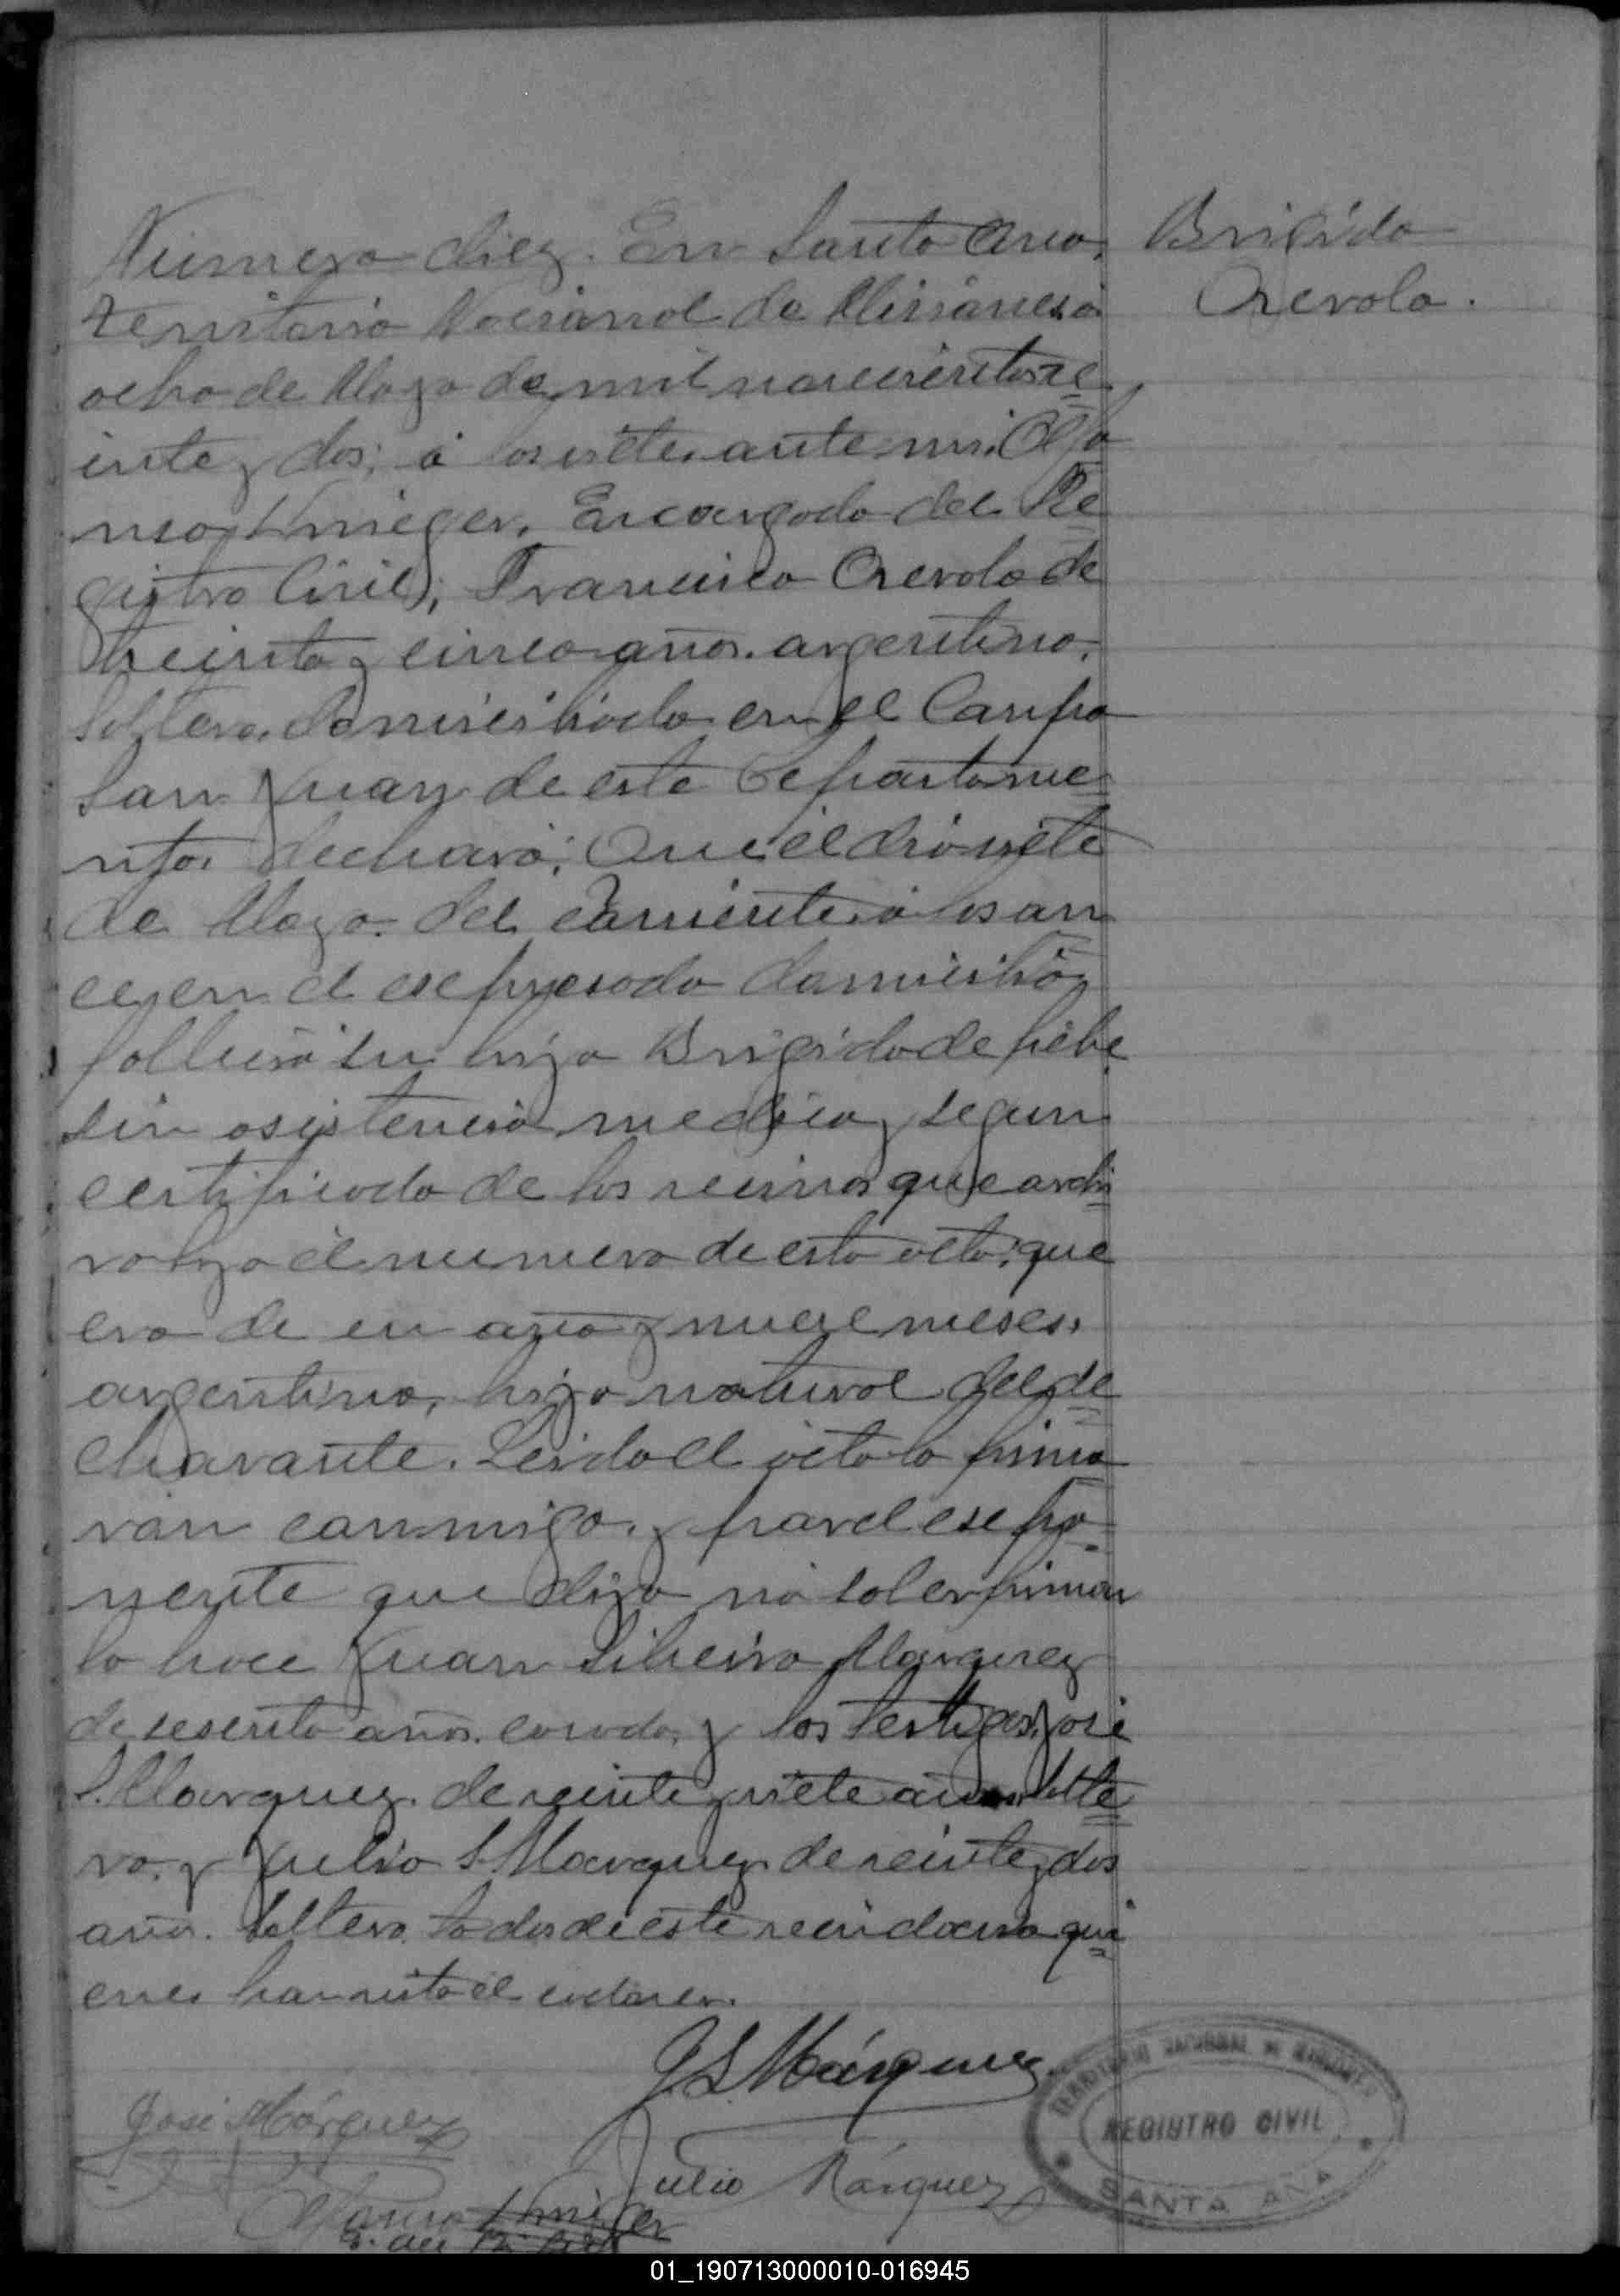 Numero diez. En Santa Ana,
territorio Nacional de Misiones á
ocho de Mayo de mil novecientos ve
inte y dos; á las siete, ante mi, Alfo
nso Encargado del Re
gistro Civil; Francisco Arevalo de
treinta y cinco años, argentino,
soltero, domiciliado en el Campo
San Juan de este Departame
nto, declaró; Que el dia siete
de Mayo del corriente á las on
ce, en el expresado domicilio,
falleció su hijo Brigido de fiebre
sin asistencia medica, segun
certificado de los vecinos que archi
vo bajo el numero de esta acta; que
era de un año y nueve meses,
argentino, hijo natural del de
clarante. Leida el acta la firma
rón conmigo, y por el expo
nente que dijo nó saber firmar
lo hace Juan Marquez
de sesenta años, casado, y los testigos, José
S. Marquez, de veinte y siete años, solte
ro, y Julio S. Marquez, de veinte y dos
años, soltero, todos de este vecindario qui
enes han visto el cadaver.
Brigido
Arevalo.
J. S. Márquez
José Márquez
Julio Márquez
TERRITORIO NACIONAL DE MISIONES
REGISTRO CIVIL
SANTA ANA
01_190713000010-016945